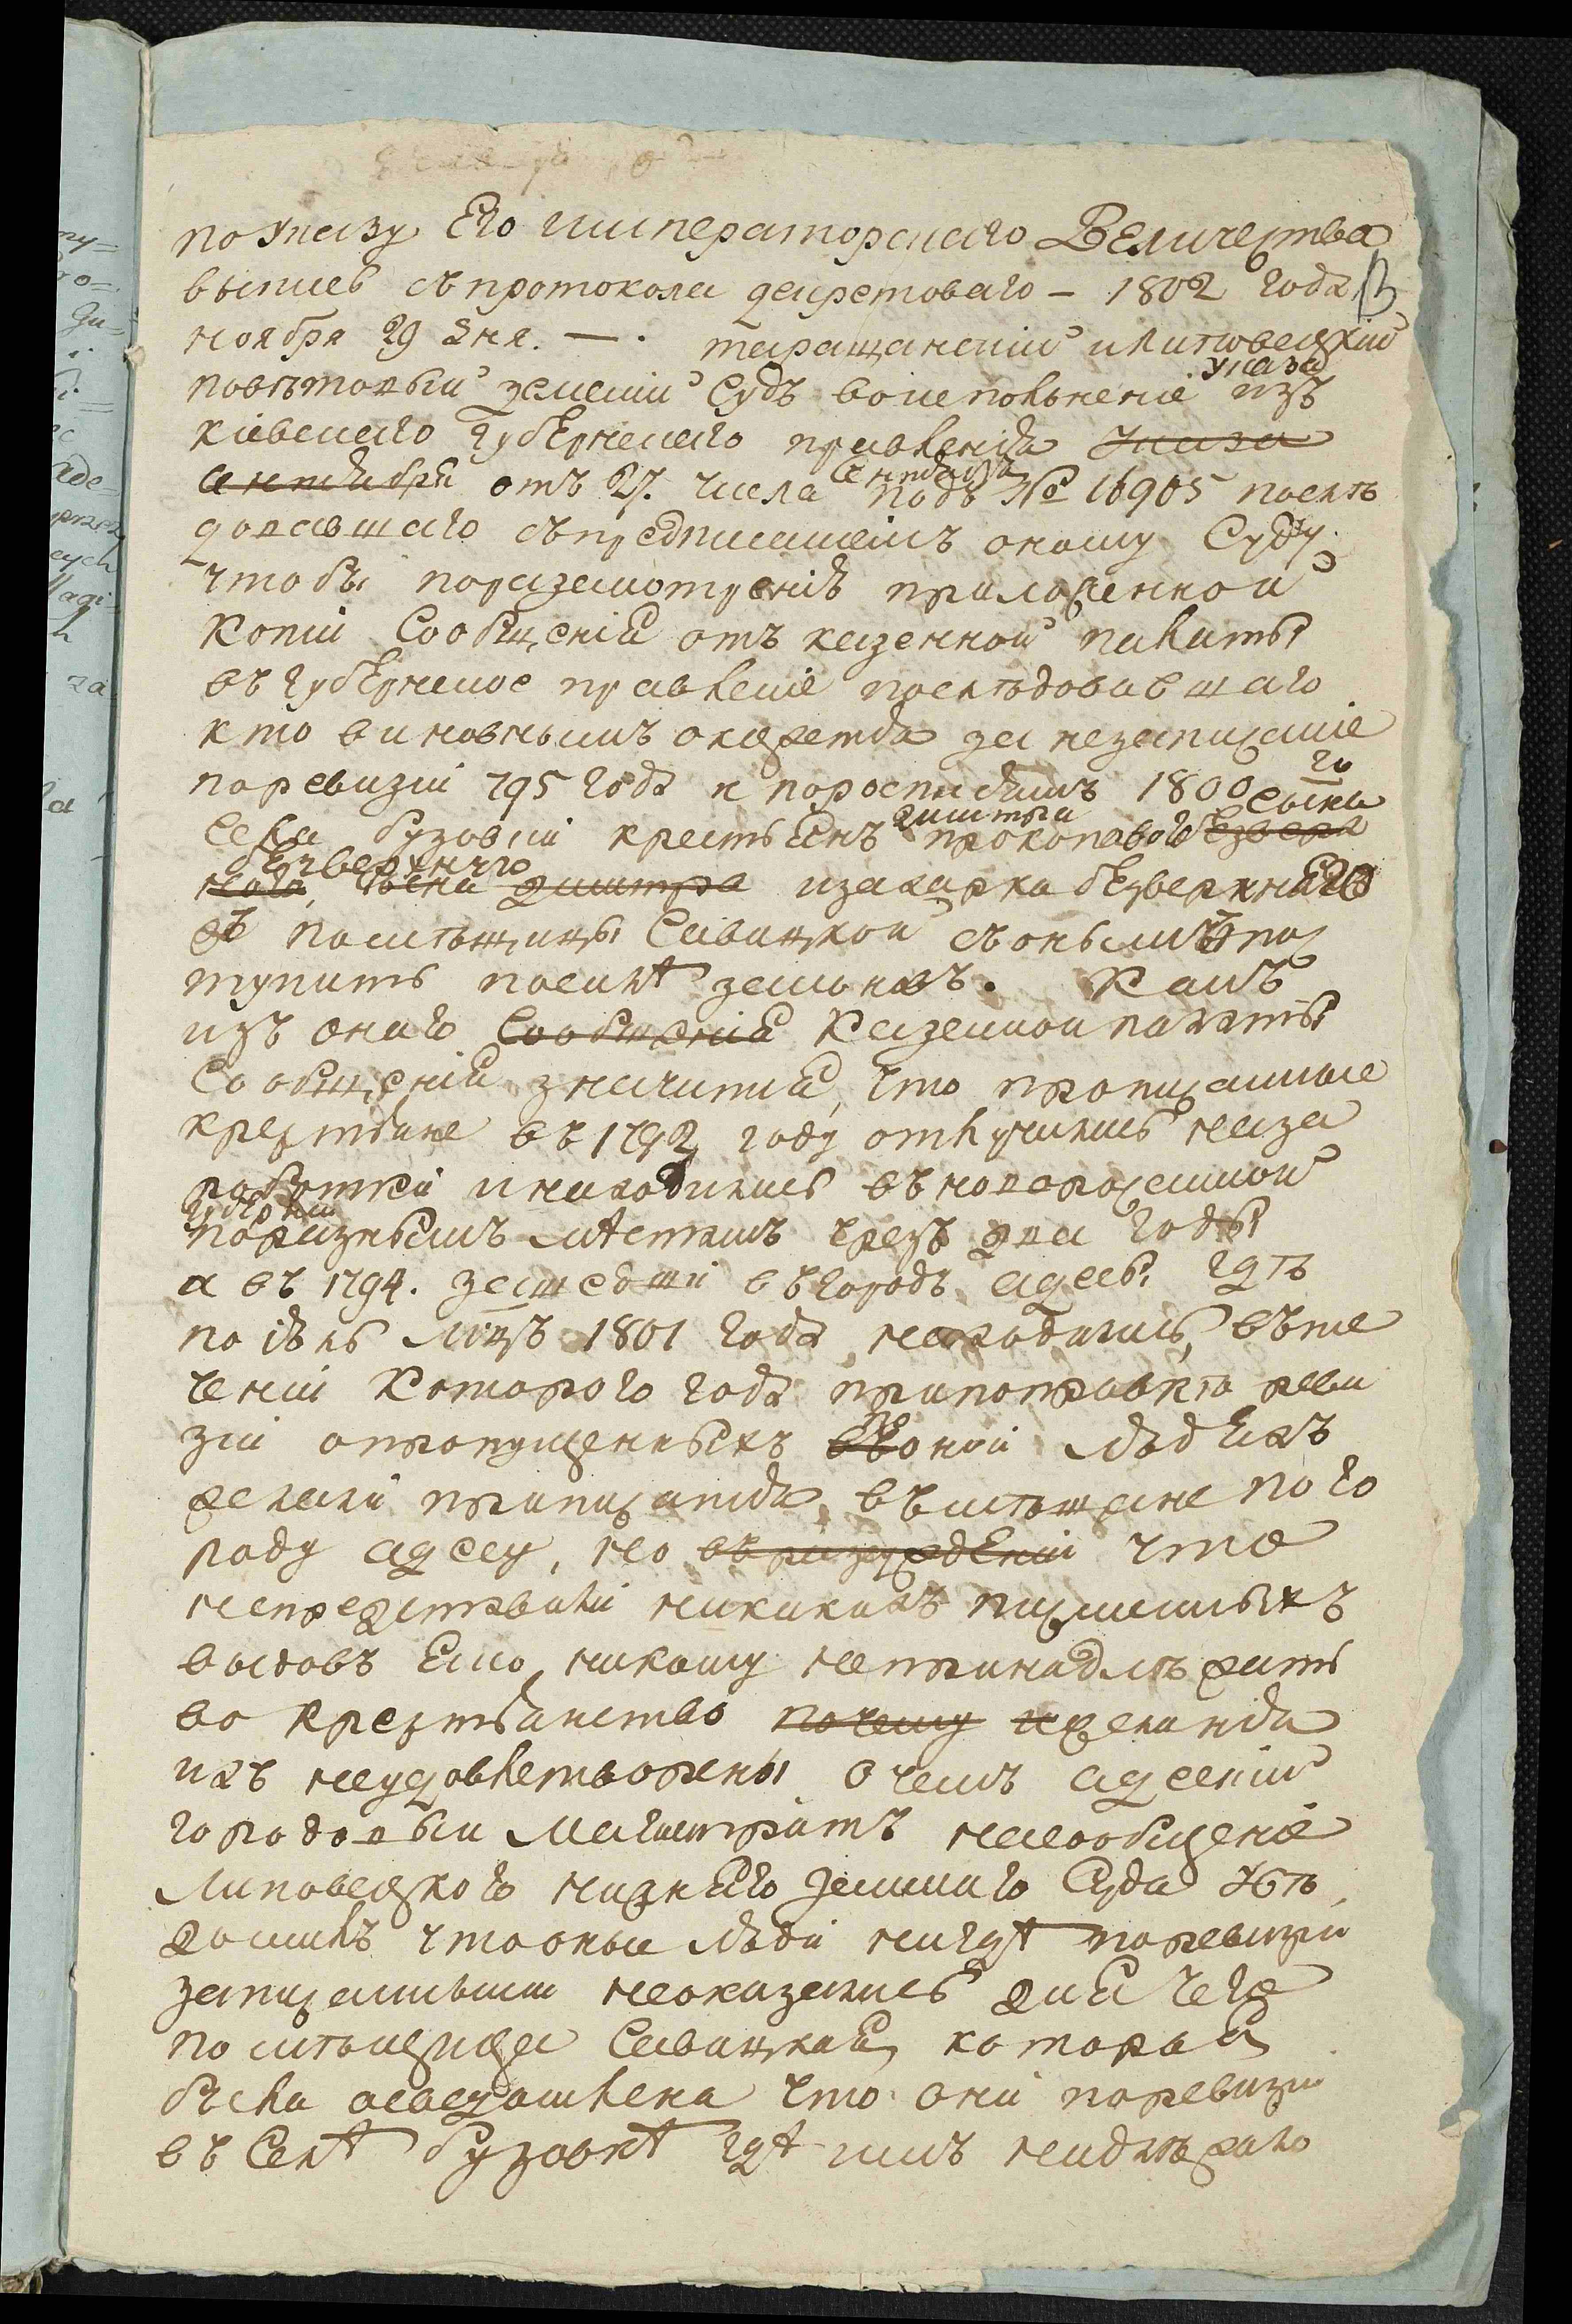 по указу Его императорскаго Величества
выпись съ протокола декретоваго – 1802 года
ноября 29 дня. — . таращанский и липовецкий
повѣтовый земский Судъ во исполънение указа изъ
киевского губернского правления указа
сентября отъ 27. числа сентября подъ № 16905 послѣ
довавшаго съ предписаниемъ оному Суду
чтобы по разсмотрению приложенной
копии Сообщения отъ казенной палаты
въ губернское правление послѣдовавшаго
кто виновнымъ окажется за незаписание
по ревизии 795 года и по росписямъ 1800 го
села бузовки крестьянъ дмитра прокопового сына безверх
ного безверхнего сына дмитра и захарка безверхнего
съ помѣщицы Савицкой съ онымъ пос
тупить посилѣ законовъ. Какъ
изъ оного Сообщения Казенной палаты
Сообщения значится, что прописанные
крестьяне въ 1792 году отлучились на за
работки и находились въ новоросийской
губернии по разнымъ мѣстамъ чрезъ два годы
а въ 1794. зашедши въ городъ адессы гдѣ
по июнь мцъ 1801 года находились, въ те
чении которого года при поправкѣ реви
зии о пропущенныхъ въ по оной людехъ
желали приписатся въ мѣщане по го
роду адессу, но въ разсуждении что
непредставили никакихъ письменныхъ
видовъ что никому непринадлѣжатъ
во крестьянство почему и желания
ихъ неудовлетворены о чемъ адеский
городовый Магистратъ на сообщение
Липовецкого нижнего земского Суда увѣ
домилъ что оные люди нигдѣ по ревизии
записанными неоказались для чего
помѣщица Савицкая, которая
была осведомлена что они по ревизии
въ Селѣ бузовкѣ гдѣ имъ надлѣжало